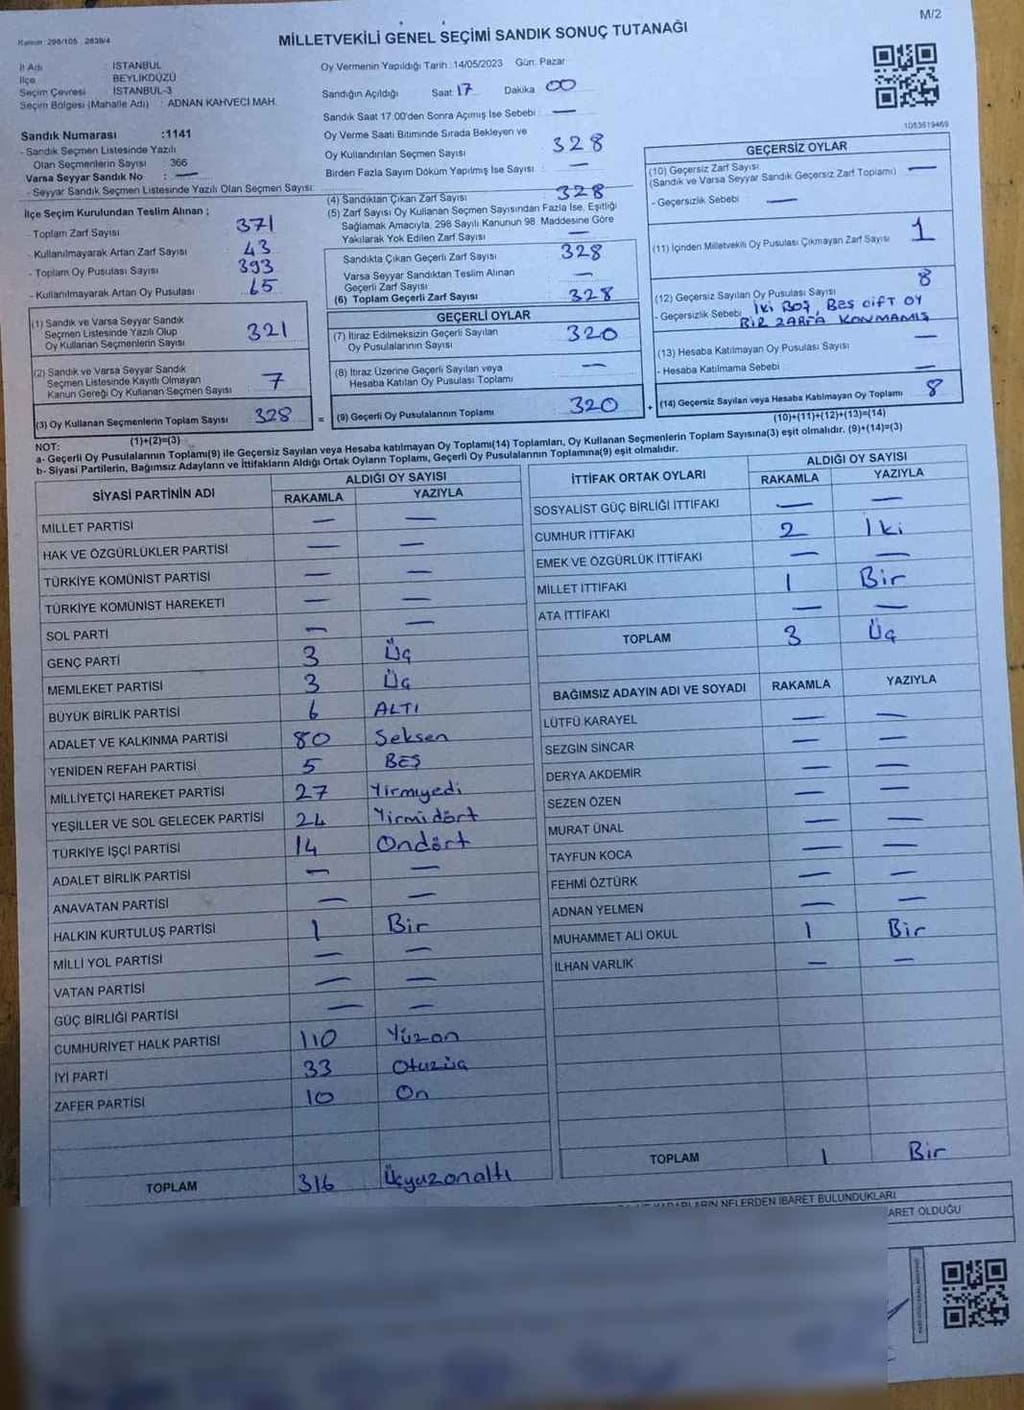 M/2
Kanun 298/105 2839/4
MİLLETVEKİLİ GENEL SEÇİMİ SANDIK SONUÇ TUTANAĞI
İl Adı : İSTANBUL
İlçe : BEYLİKDÜZÜ
Seçim Çevresi : İSTANBUL-3
Seçim Bölgesi (Mahalle Adı) : ADNAN KAHVECİ MAH.
Sandık Numarası :1141
- Sandık Seçmen Listesinde Yazılı
Olan Seçmenlerin Sayısı : 366
Varsa Seyyar Sandık No : —
- Seyyar Sandık Seçmen Listesinde Yazılı Olan Seçmen Sayısı:
Oy Vermenin Yapıldığı Tarih :14/05/2023 Gün: Pazar
Sandığın Açıldığı Saat 17 Dakika 00
Sandık Saat 17.00'den Sonra Açımış İse Sebebi : —
Oy Verme Saati Bitiminde Sırada Bekleyen ve
Oy Kullandırılan Seçmen Sayısı : 328
Birden Fazla Sayım Döküm Yapılmış İse Sayısı : —
1083619469
İlçe Seçim Kurulundan Teslim Alınan ;
- Toplam Zarf Sayısı 371
- Kullanılmayarak Artan Zarf Sayısı 43
- Toplam Oy Pusulası Sayısı 393
- Kullanılmayarak Artan Oy Pusulası 65
(1) Sandık ve Varsa Seyyar Sandık
Seçmen Listesinde Yazılı Olup
Oy Kullanan Seçmenlerin Sayısı 321
(2) Sandık ve Varsa Seyyar Sandık
Seçmen Listesinde Kayıtlı Olmayan
Kanun Gereği Oy Kullanan Seçmen Sayısı 7
(3) Oy Kullanan Seçmenlerin Toplam Sayısı 328 =
(1)+(2)=(3)
(4) Sandıktan Çıkan Zarf Sayısı 328
(5) Zarf Sayısı Oy Kullanan Seçmen Sayısından Fazla İse, Eşitliği
Sağlamak Amacıyla, 298 Sayılı Kanunun 98. Maddesine Göre
Yakılarak Yok Edilen Zarf Sayısı —
Sandıkta Çıkan Geçerli Zarf Sayısı 328
Varsa Seyyar Sandıktan Teslim Alınan
Geçerli Zarf Sayısı —
(6) Toplam Geçerli Zarf Sayısı 328
GEÇERLİ OYLAR
(7) İtiraz Edilmeksizin Geçerli Sayılan
Oy Pusulalarının Sayısı 320
(8) İtiraz Üzerine Geçerli Sayılan veya
Hesaba Katılan Oy Pusulası Toplamı —
(9) Geçerli Oy Pusulalarının Toplamı 320 +
GEÇERSİZ OYLAR
(10) Geçersiz Zarf Sayısı —
(Sandık ve Varsa Seyyar Sandık Geçersiz Zarf Toplamı)
- Geçersizlik Sebebi —
(11) İçinden Milletvekili Oy Pusulası Çıkmayan Zarf Sayısı 1
(12) Geçersiz Sayılan Oy Pusulası Sayısı 8
- Geçersizlik Sebebi İKİ BOŞ, BEŞ ÇİFT OY
BİR ZARFA KONMAMIŞ
(13) Hesaba Katılmayan Oy Pusulası Sayısı —
- Hesaba Katılmama Sebebi —
(14) Geçersiz Sayılan veya Hesaba Katılmayan Oy Toplamı 8
(10)+(11)+(12)+(13)=(14)
NOT:
a- Geçerli Oy Pusulalarının Toplamı(9) ile Geçersiz Sayılan veya Hesaba katılmayan Oy Toplamı(14) Toplamları, Oy Kullanan Seçmenlerin Toplam Sayısına(3) eşit olmalıdır. (9)+(14)=(3)
b- Siyasi Partilerin, Bağımsız Adayların ve İttifakların Aldığı Ortak Oyların Toplamı, Geçerli Oy Pusulalarının Toplamına(9) eşit olmalıdır.
SİYASİ PARTİNİN ADI ALDIĞI OY SAYISI
RAKAMLA YAZIYLA
MİLLET PARTİSİ — —
HAK VE ÖZGÜRLÜKLER PARTİSİ — —
TÜRKİYE KOMÜNİST PARTİSİ — —
TÜRKİYE KOMÜNİST HAREKETİ — —
SOL PARTİ — —
GENÇ PARTİ 3 Üç
MEMLEKET PARTİSİ 3 Üç
BÜYÜK BİRLİK PARTİSİ 6 ALTI
ADALET VE KALKINMA PARTİSİ 80 Seksen
YENİDEN REFAH PARTİSİ 5 BEŞ
MİLLİYETÇİ HAREKET PARTİSİ 27 Yirmiyedi
YEŞİLLER VE SOL GELECEK PARTİSİ 24 Yirmidört
TÜRKİYE İŞÇİ PARTİSİ 14 Ondört
ADALET BİRLİK PARTİSİ — —
ANAVATAN PARTİSİ — —
HALKIN KURTULUŞ PARTİSİ 1 Bir
MİLLİ YOL PARTİSİ — —
VATAN PARTİSİ — —
GÜÇ BİRLİĞİ PARTİSİ — —
CUMHURİYET HALK PARTİSİ 110 Yüzon
İYİ PARTİ 33 Otuzüç
ZAFER PARTİSİ 10 On
TOPLAM 316 Üçyüzonaltı
İTTİFAK ORTAK OYLARI ALDIĞI OY SAYISI
RAKAMLA YAZIYLA
SOSYALİST GÜÇ BİRLİĞİ İTTİFAKI — —
CUMHUR İTTİFAKI 2 İki
EMEK VE ÖZGÜRLÜK İTTİFAKI — —
MİLLET İTTİFAKI 1 Bir
ATA İTTİFAKI — —
TOPLAM 3 Üç
BAĞIMSIZ ADAYIN ADI VE SOYADI RAKAMLA YAZIYLA
LÜTFÜ KARAYEL — —
SEZGİN SİNCAR — —
DERYA AKDEMİR — —
SEZEN ÖZEN — —
MURAT ÜNAL — —
TAYFUN KOCA — —
FEHMİ ÖZTÜRK — —
ADNAN YELMEN — —
MUHAMMET ALİ OKUL 1 Bir
İLHAN VARLIK — —
TOPLAM 1 Bir
NELERDEN İBARET BULUNDUKLARI
ARET OLDUĞU